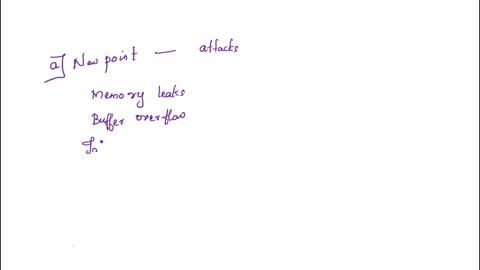 a] New point — attacks
Memory leaks
Buffer overflow
In